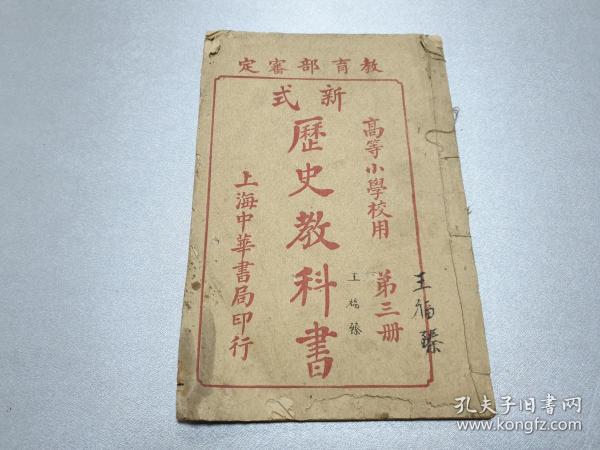 教育部審定
新式
高等小學校用 第三册
歷史教科書
上海中華書局印行
王福臻
王福臻
孔夫子旧书网
www.kongfz.com